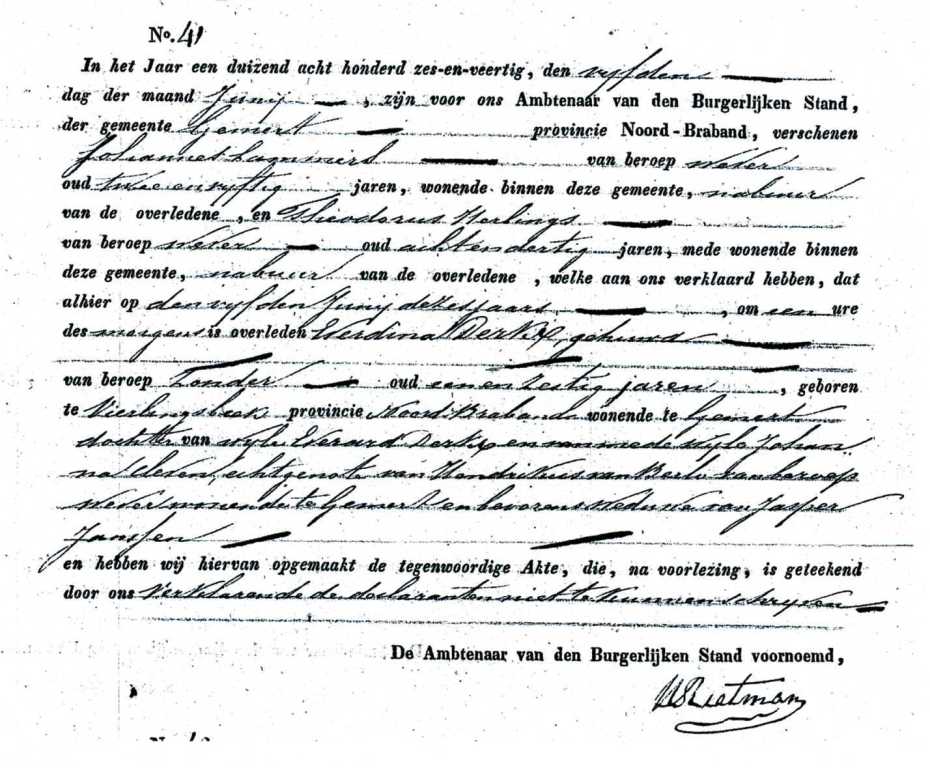 No. 41
In het Jaar een duizend acht honderd zes-en-veertig, den vyfden
dag der maand Junij, zijn voor ons Ambtenaar van den Burgerlijken Stand,
der gemeente Gemert provincie Noord-Braband, verschenen
Johannes Lammers van beroep wever
oud twee en vyftig jaren, wonende binnen deze gemeente, nabuur
van de overledene, en Theodorus Herlings
van beroep wever oud acht en dertig jaren, mede wonende binnen
deze gemeente, nabuur van de overledene, welke aan ons verklaard hebben, dat
alhier op den vyfden Junij dezes jaars, om een ure
des morgens is overleden Everdina Derkx, gehuwd
van beroep Zonder oud een en zestig jaren, geboren
te Vierlingsbeek provincie Noord Braband wonende te Gemert
dochter van wyle Everard Derkx en van mede wyle Johan-
na, echtgenote van Hendrikus van Berlo van beroep
wever wonende te Gemert en bevorens weduwe van Jasper
Janssen
en hebben wij hiervan opgemaakt de tegenwoordige Akte, die, na voorlezing, is geteekend
door ons Verklarende de declaranten niet te kunnen schryven
De Ambtenaar van den Burgerlijken Stand voornoemd,
Rietman